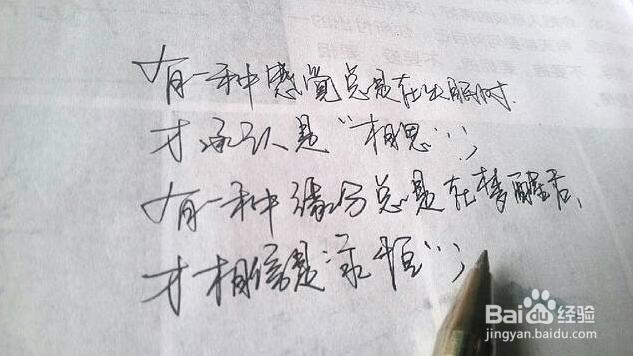 有一种感觉总是在失眠时,
才承认是“相思”;
有一种缘份总是在梦醒后、
才相信是“永恒”;
Baidu经验
jingyan.baidu.com